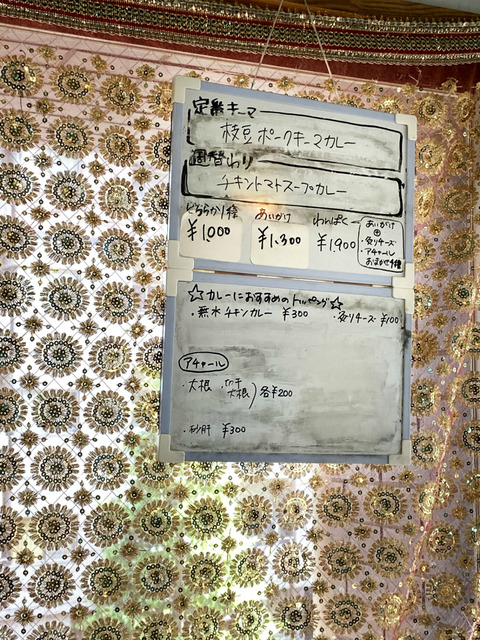 定番キーマ
枝豆ポークキーマカレー
週替わり
チキントマトスープカレー
どちらか1種 あいがけ わんぱく
¥1,000 ¥1,300 ¥1,900
あいがけ
⊕
・炙りチーズ
・アチャール
おまかせ4種
☆カレーにおすすめのトッピング☆
・無水チキンカレー ¥300 ・炙りチーズ ¥100
アチャール
・大根 ・切干大根 各¥200
・砂肝 ¥300